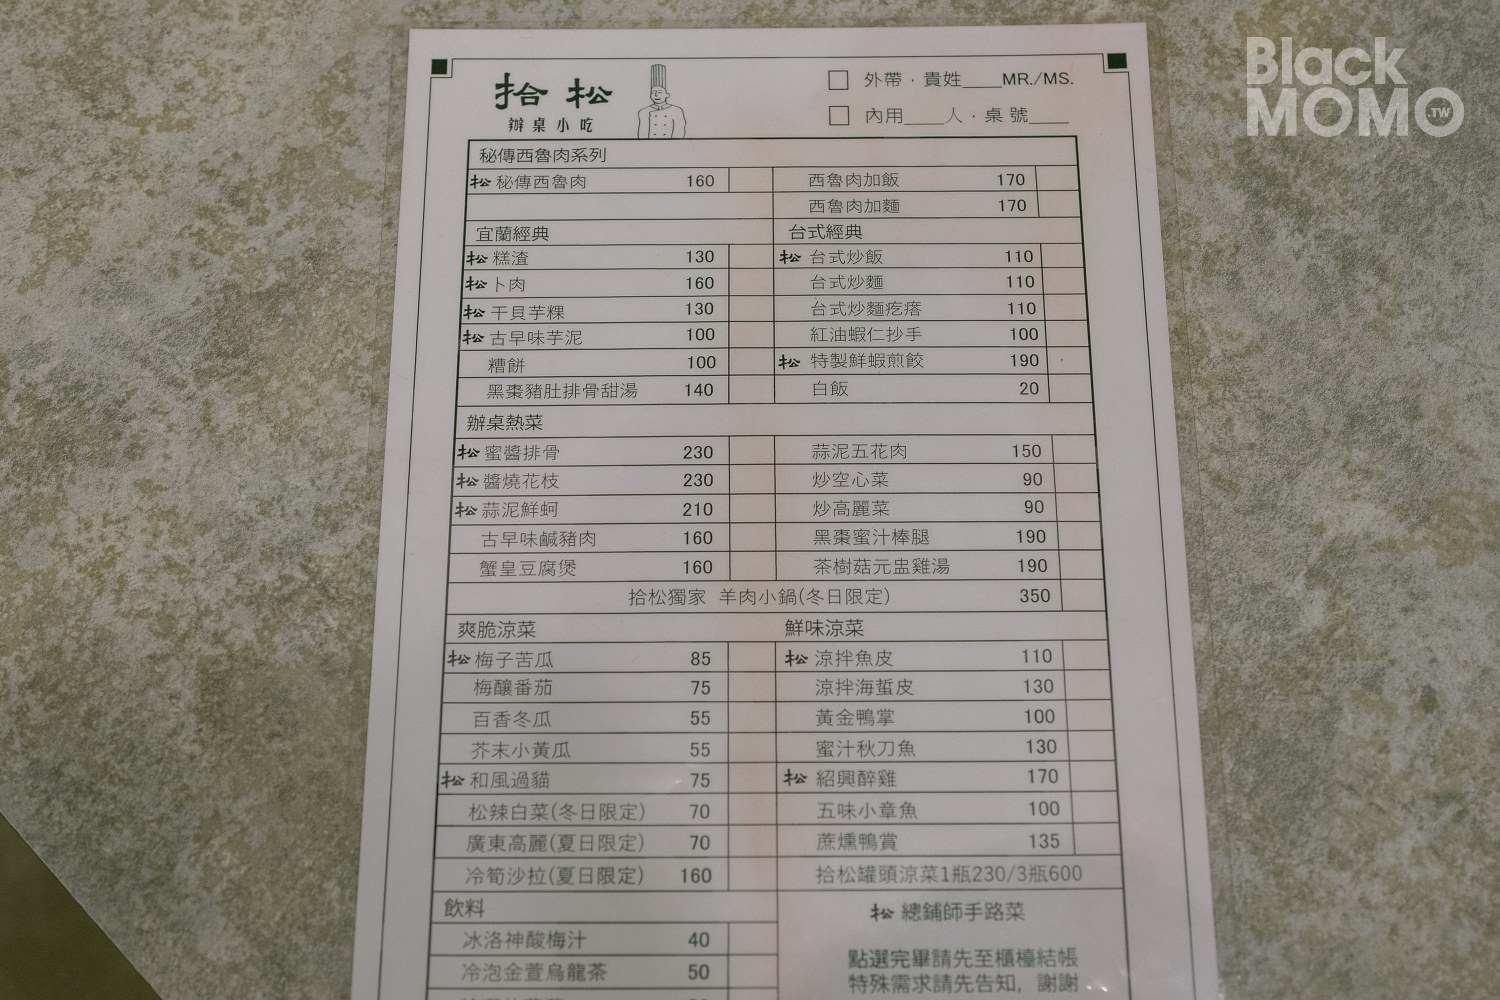 Black
MOMO.TW
拾松
辦桌小吃
外帶．貴姓____MR./MS.
內用____人．桌號____
秘傳西魯肉系列
松 秘傳西魯肉 160 西魯肉加飯 170
西魯肉加麵 170
宜蘭經典 台式經典
松 糕渣 130 松 台式炒飯 110
松 卜肉 160 台式炒麵 110
松 干貝芋粿 130 台式炒麵疙瘩 110
松 古早味芋泥 100 紅油蝦仁抄手 100
糟餅 100 松 特製鮮蝦煎餃 190
黑棗豬肚排骨甜湯 140 白飯 20
辦桌熱菜
松 蜜醬排骨 230 蒜泥五花肉 150
松 醬燒花枝 230 炒空心菜 90
松 蒜泥鮮蚵 210 炒高麗菜 90
古早味鹹豬肉 160 黑棗蜜汁棒腿 190
蟹皇豆腐煲 160 茶樹菇元盅雞湯 190
拾松獨家 羊肉小鍋(冬日限定) 350
爽脆涼菜 鮮味涼菜
松 梅子苦瓜 85 松 涼拌魚皮 110
梅釀番茄 75 涼拌海蜇皮 130
百香冬瓜 55 黃金鴨掌 100
芥末小黃瓜 55 蜜汁秋刀魚 130
松 和風過貓 75 松 紹興醉雞 170
松辣白菜(冬日限定) 70 五味小章魚 100
廣東高麗(夏日限定) 70 蔗燻鴨賞 135
冷筍沙拉(夏日限定) 160 拾松罐頭涼菜1瓶230/3瓶600
飲料 松 總鋪師手路菜
冰洛神酸梅汁 40 點選完畢請先至櫃檯結帳
冷泡金萱烏龍茶 50 特殊需求請先告知，謝謝